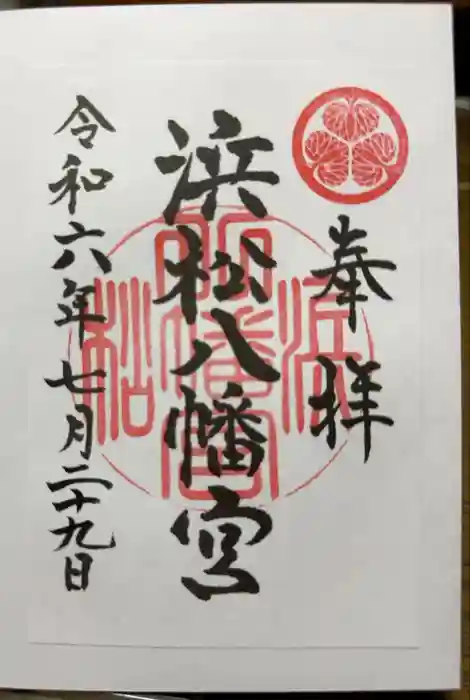 奉拝
浜松八幡宮
令和六年七月二十九日
浜松
八幡宮